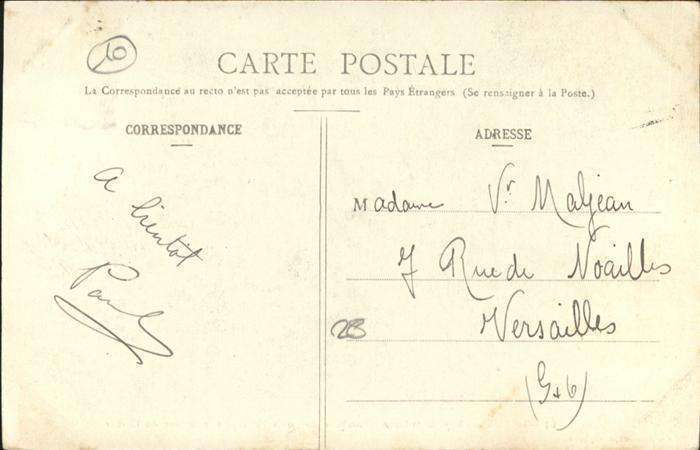 6
CARTE POSTALE
La Correspondance au recto n'est pas acceptée par tous les Pays Étrangers (Se renseigner à la Poste.)
CORRESPONDANCE
a bientôt
Paul
ADRESSE
Madame Vr Maljean
7 Rue de Noailles
Versailles
(S & O)
2B